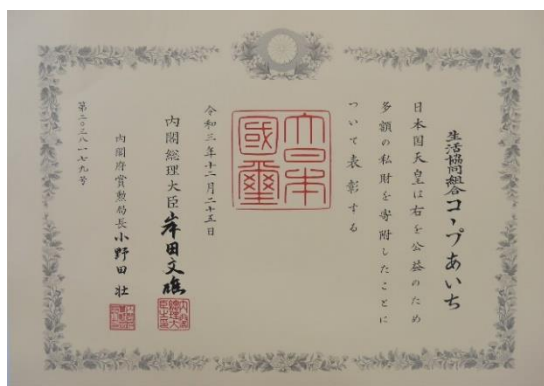 生活協同組合コープあいち
日本国天皇は右を公益のため
多額の私財を寄附したことに
ついて表彰する
大日本
國璽
令和三年十二月二十五日
内閣総理大臣 岸田文雄
内閣府賞勲局長 小野田 壮